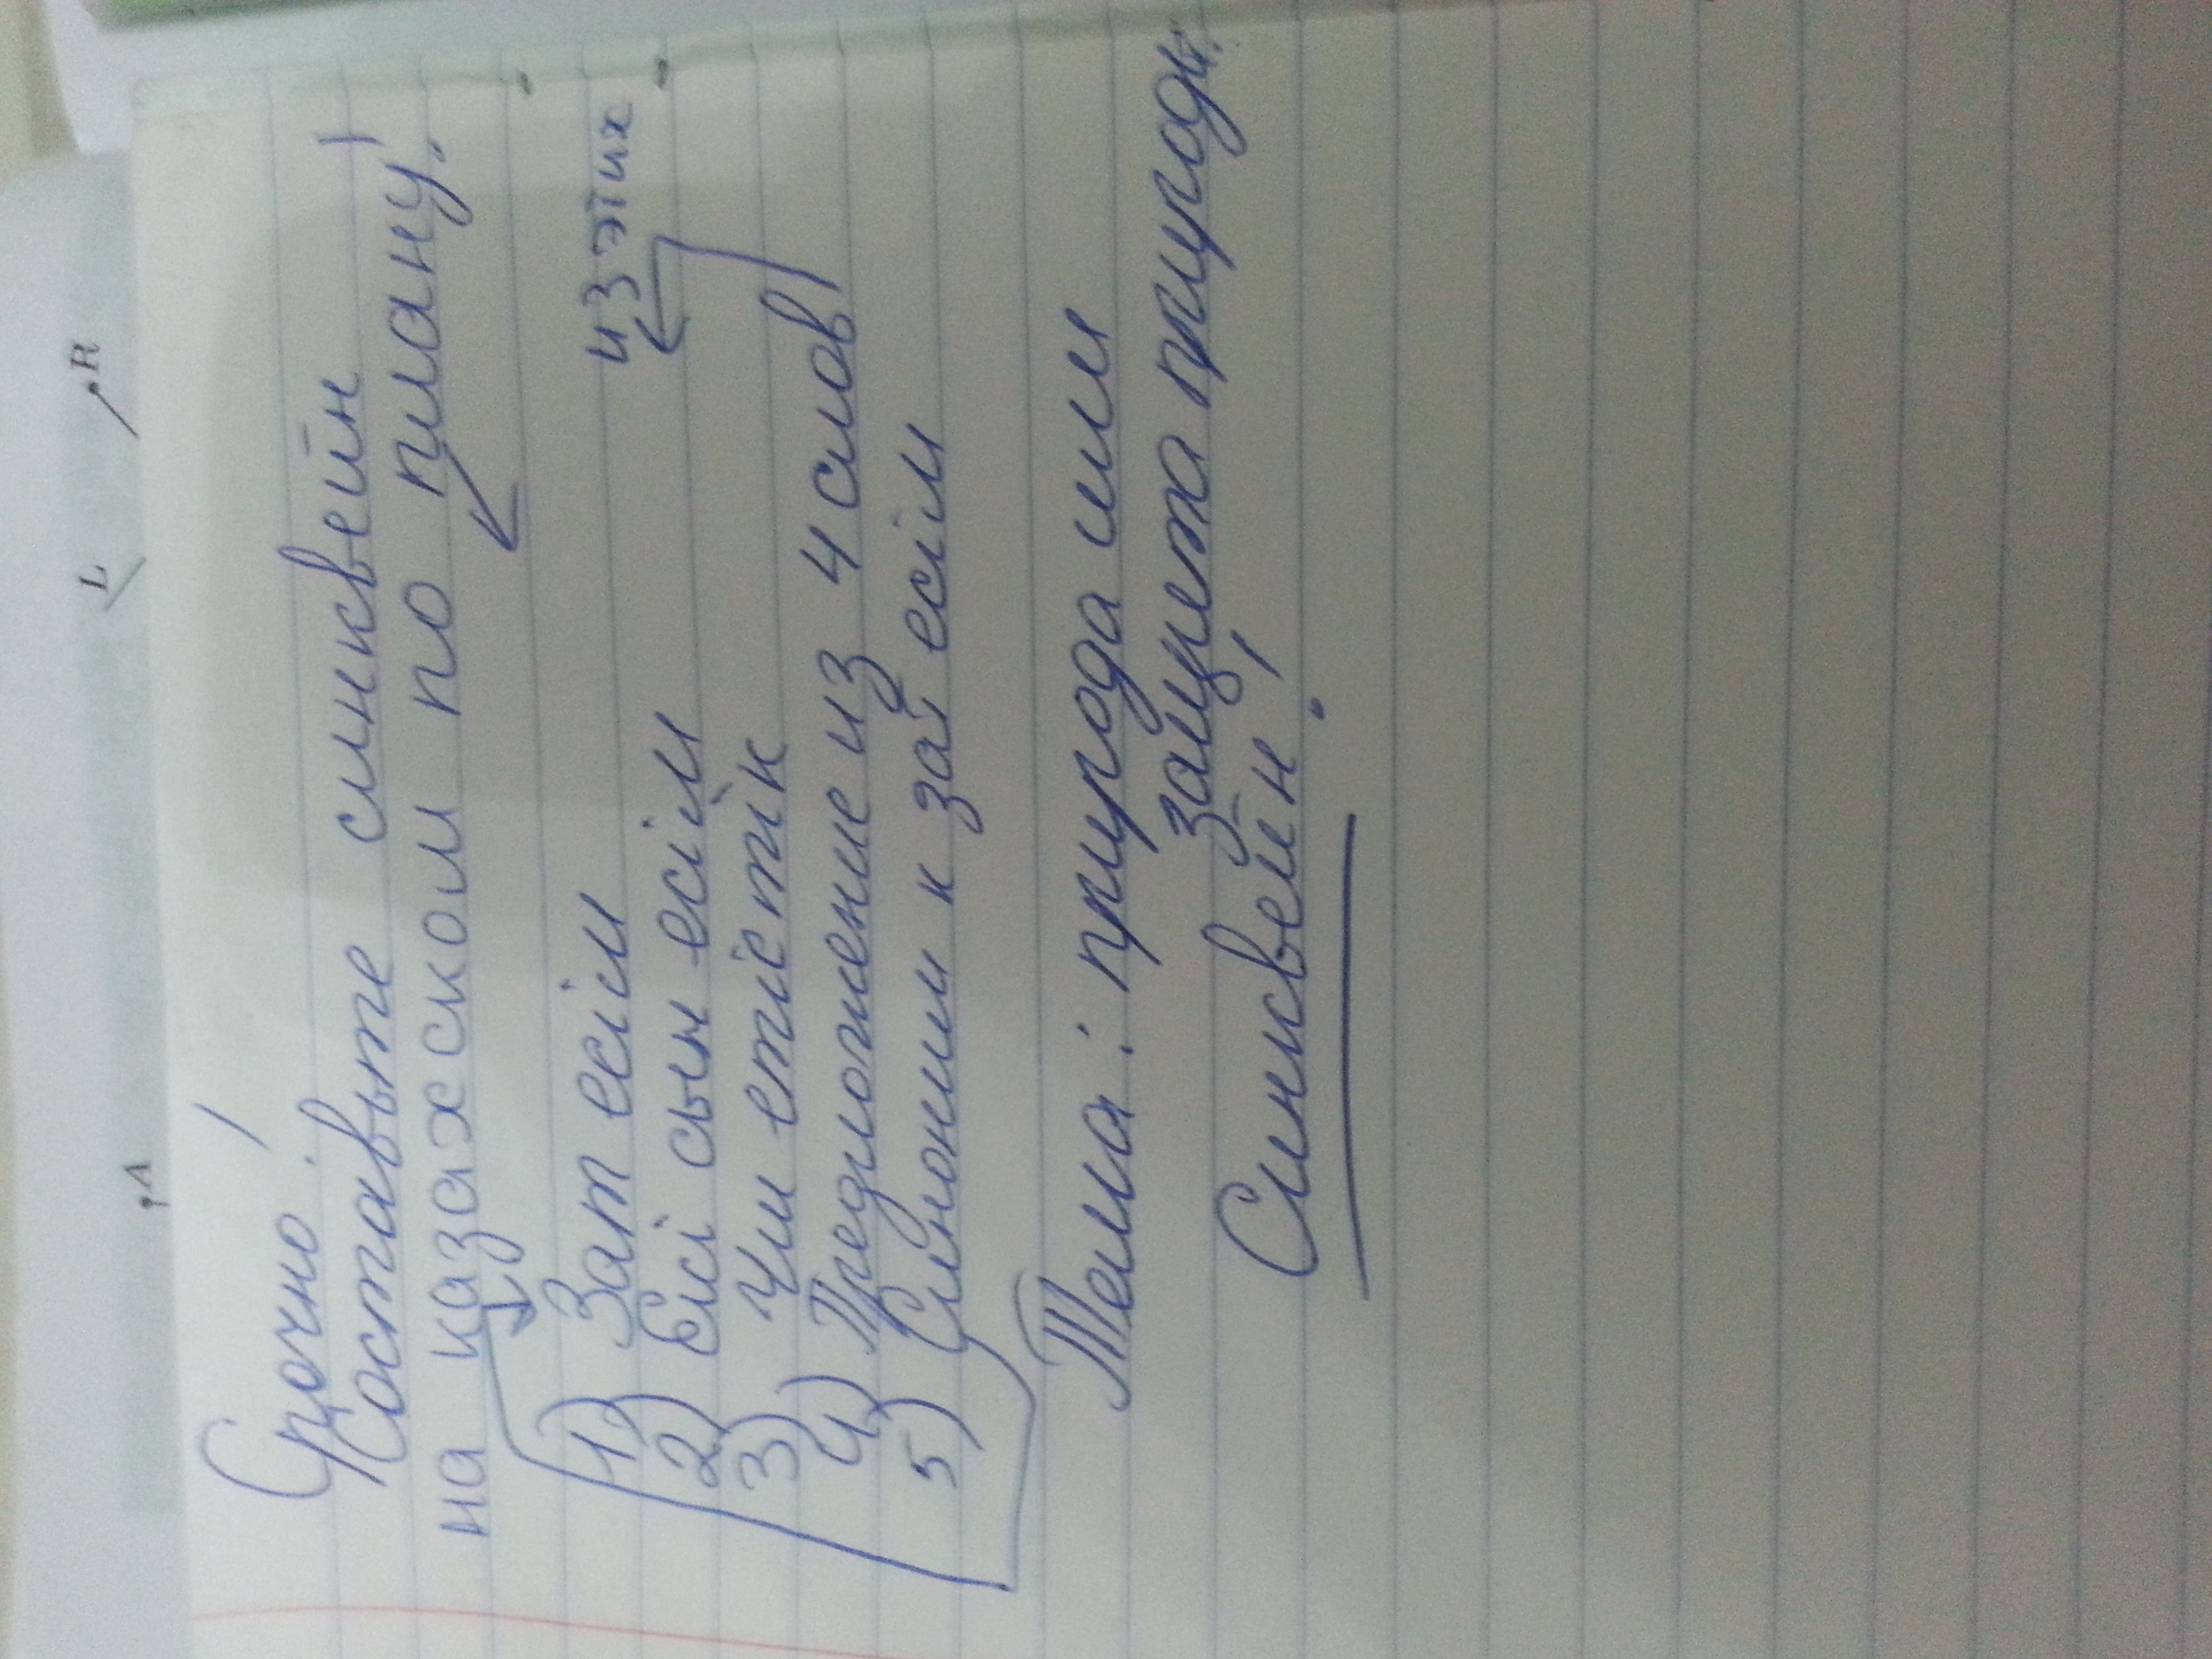 Срочно!
Составьте синквейн
на казахском по плану!
из этих
1) Зат есім
2) Екі сын есім
3) Үш етістік
4) Предложение из 4 слов
5) Синоним к зат есім
Тема: природа или
защита природы.
Синквейн!
A
L
R